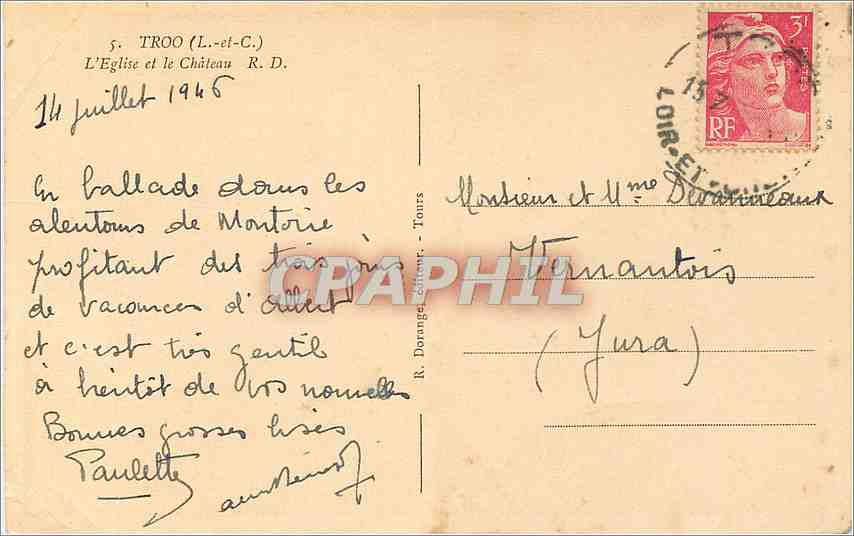 5. TROO (L.-et-C.)
L'Eglise et le Château R. D.
14 juillet 1946
En ballade dans les
alentours de Montoire
profitant des trois jours
de vacances d'Albert
et c'est très gentil
à bientôt de vos nouvelles
Bonnes grosses bises
Paulette
R. Dorange, éditeur. - Tours
3F
POSTES
RF
15.7
LOIR-ET-CHER
Monsieur et Mme
Vernantois
(Jura)
CPAPHIL